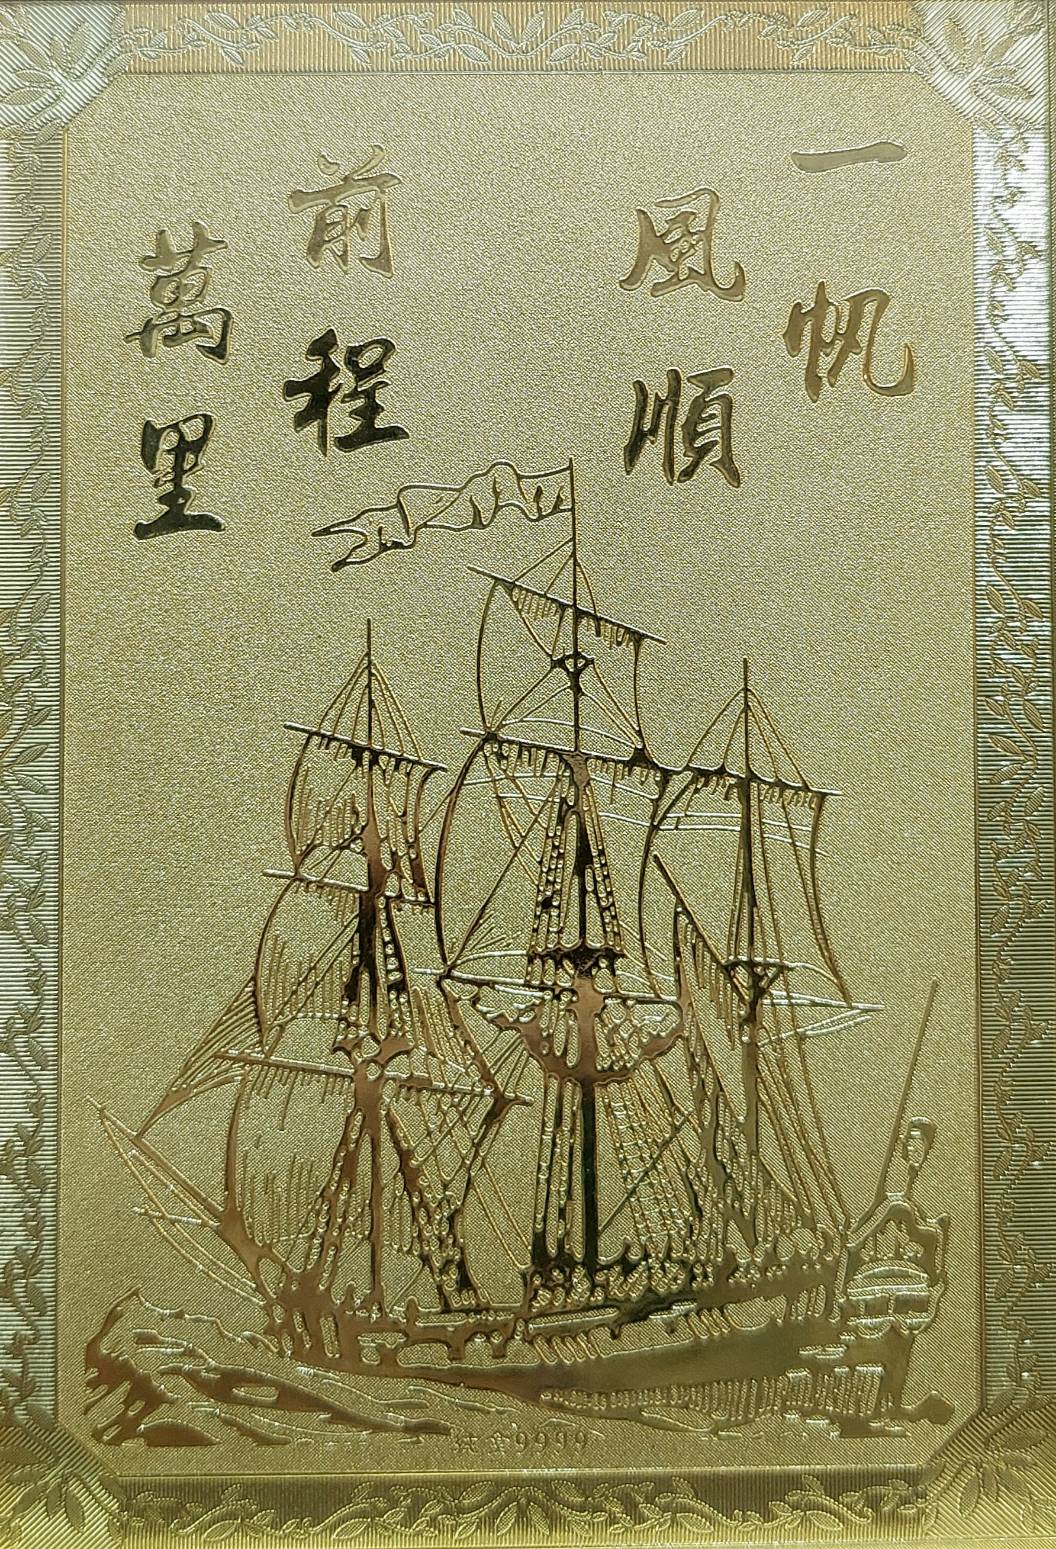 一帆
風順
前程
萬里
純金9999